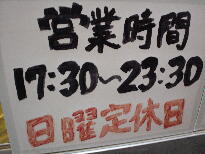 営業時間
17:30~23:30
日曜定休日